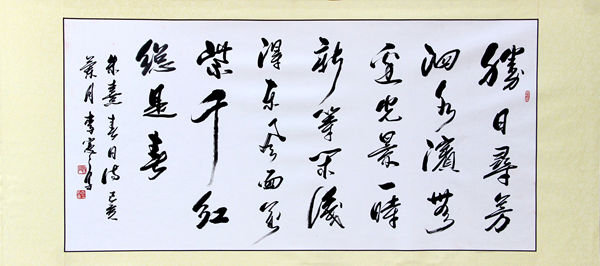 勝日尋芳
泗水濱無
邊光景一時
新等閒識
得東風面萬
紫千紅
總是春
朱熹春日詩己亥
葉月李